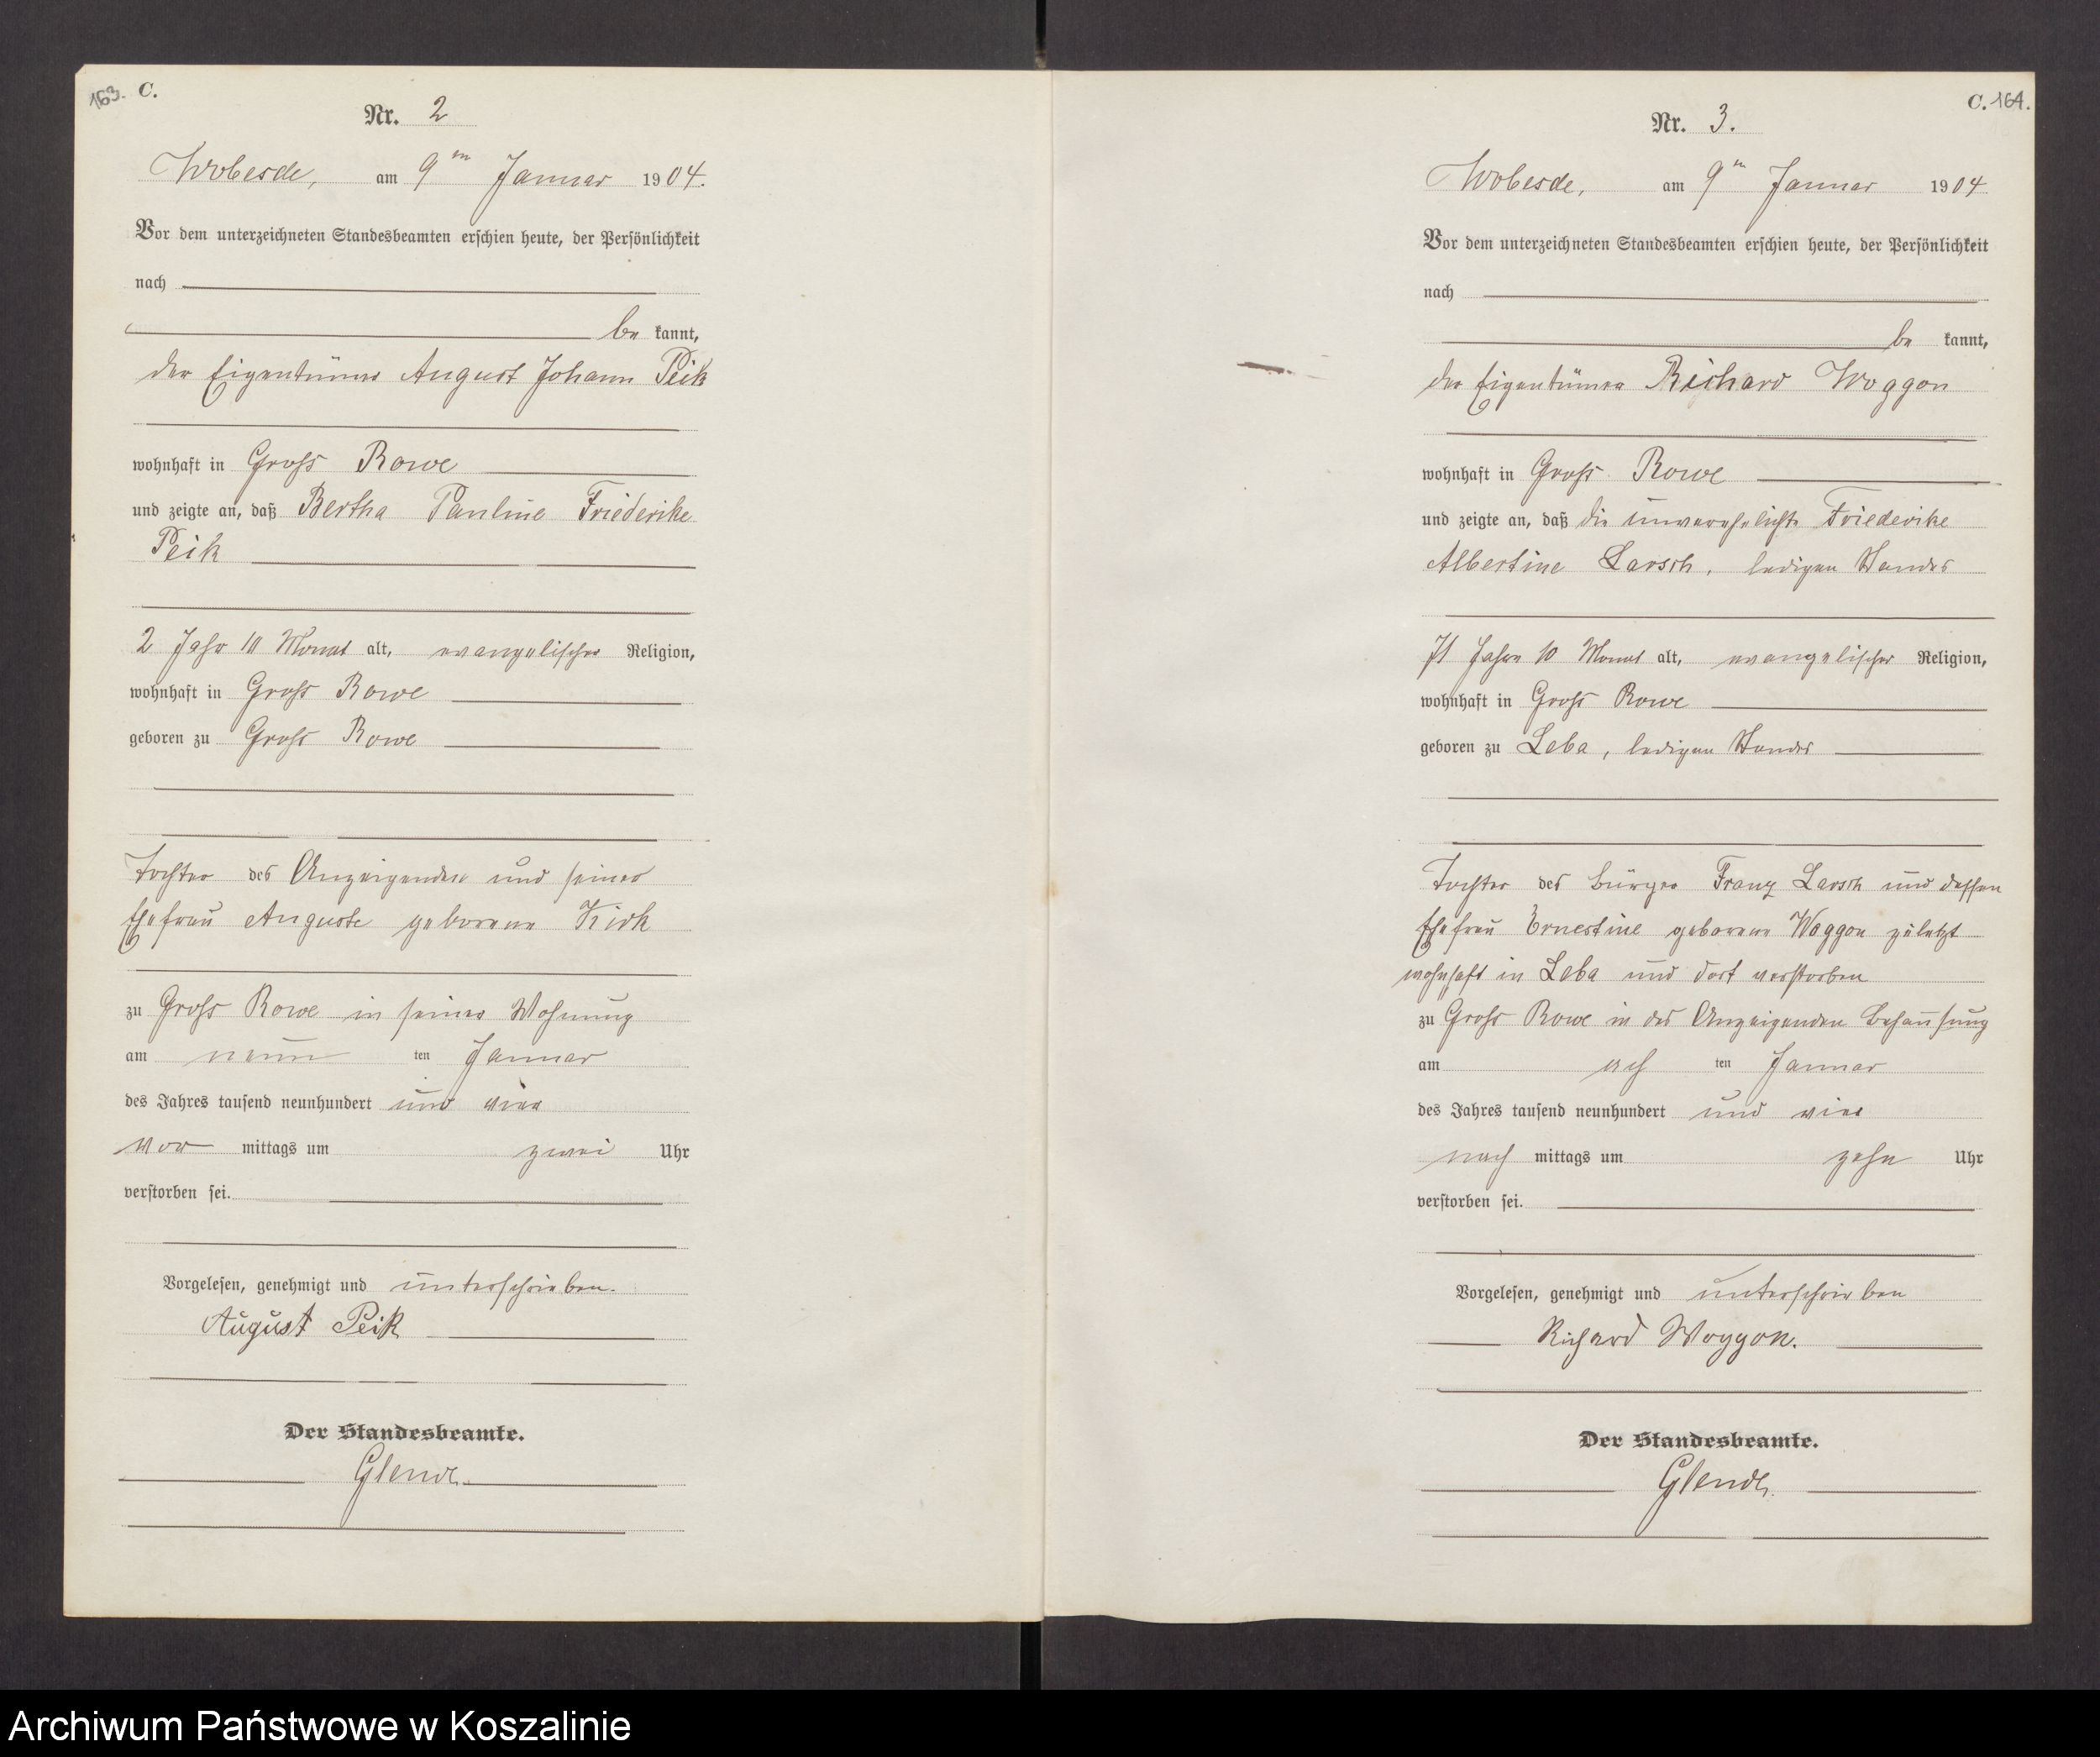 163. C.
Nr. 2
Wobesde, am 9ten Januar 1904.
Vor dem unterzeichneten Standesbeamten erschien heute, der Persönlichkeit
nach
be kannt,
der Eigentümer August Johann Peik
wohnhaft in Gross Rowe
und zeigte an, daß Bertha Pauline Friederike
Peik
2 Jahr 10 Monat alt, evangelischer Religion,
wohnhaft in Gross Rowe
geboren zu Gross Rowe
Tochter des Anzeigenden und seiner
Ehefrau Auguste geborene Kirk
zu Gross Rowe in seiner Wohnung
am neun ten Januar
des Jahres tausend neunhundert und vier
vor mittags um zwei Uhr
verstorben sei.
Vorgelesen, genehmigt und unterschrieben.
August Peik
Der Standesbeamte.
C. 164.
Nr. 3.
Wobesde, am 9ten Januar 1904
Vor dem unterzeichneten Standesbeamten erschien heute, der Persönlichkeit
nach
be kannt,
der Eigentümer Richard Woggon
wohnhaft in Gross Rowe
und zeigte an, daß die unverehelichte Friederike
Albertine Larsch, ledigen Standes
71 Jahre 10 Monat alt, evangelischer Religion,
wohnhaft in Gross Rowe
geboren zu Leba, ledigen Standes
Tochter des Bürger Franz Larsch und dessen
Ehefrau Ernestine geborene Woggon zuletzt
wohnhaft in Leba und dort verstorben
zu Gross Rowe in des Anzeigenden Behausung
am ach ten Januar
des Jahres tausend neunhundert und vier
nach mittags um zehn Uhr
verstorben sei.
Vorgelesen, genehmigt und unterschrieben
Richard Woggon.
Der Standesbeamte.
Archiwum Państwowe w Koszalinie